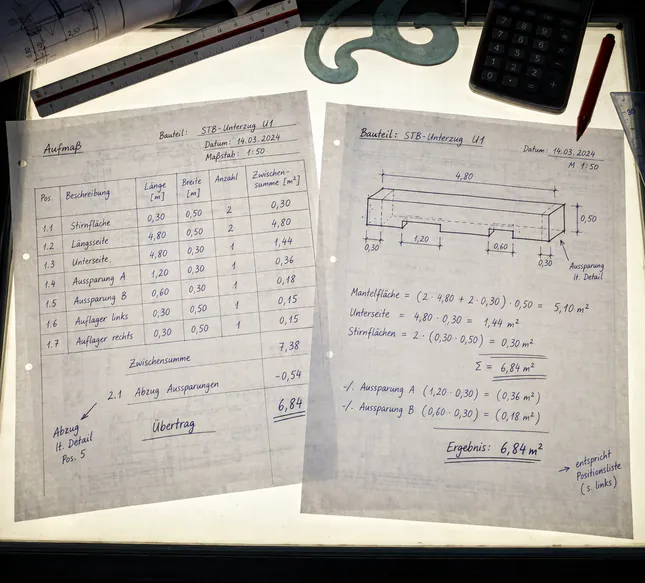 2,50
Aufmaß
Bauteil: STB-Unterzug U1
Datum: 14.03.2024
Maßstab: 1:50
Pos. Beschreibung Länge [m] Breite [m] Anzahl Zwischen-summe [m²]
1.1 Stirnfläche 0,30 0,50 2 0,30
1.2 Längsseite 4,80 0,50 2 4,80
1.3 Unterseite 4,80 0,30 1 1,44
1.4 Aussparung A 1,20 0,30 1 0,36
1.5 Aussparung B 0,60 0,30 1 0,18
1.6 Auflager links 0,30 0,50 1 0,15
1.7 Auflager rechts 0,30 0,50 1 0,15
Zwischensumme 7,38
2.1 Abzug Aussparungen -0,54
6,84
Übertrag
Abzug
lt. Detail
Pos. 5
Bauteil: STB-Unterzug U1
Datum: 14.03.2024
M 1:50
4,80
0,50
0,30 1,20 0,60 0,30
Aussparung
lt. Detail
Mantelfläche = (2 · 4,80 + 2 · 0,30) · 0,50 = 5,10 m²
Unterseite = 4,80 · 0,30 = 1,44 m²
Stirnflächen = 2 · (0,30 · 0,50) = 0,30 m²
Σ = 6,84 m²
-/. Aussparung A (1,20 · 0,30) = (0,36 m²)
-/. Aussparung B (0,60 · 0,30) = (0,18 m²)
Ergebnis: 6,84 m²
→ entspricht
Positionsliste
(s. links)